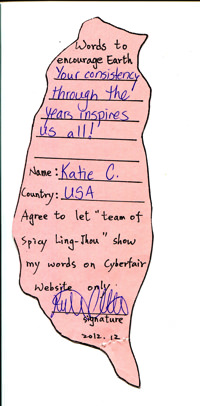 Words to
encourage Earth
Your consistency
through the
years inspires
us all!
Name: Katie C.
Country: USA
Agree to let "team of
Spicy Ling-Jhou" show
my words on Cyberfair
Website only.
signature
2012.12